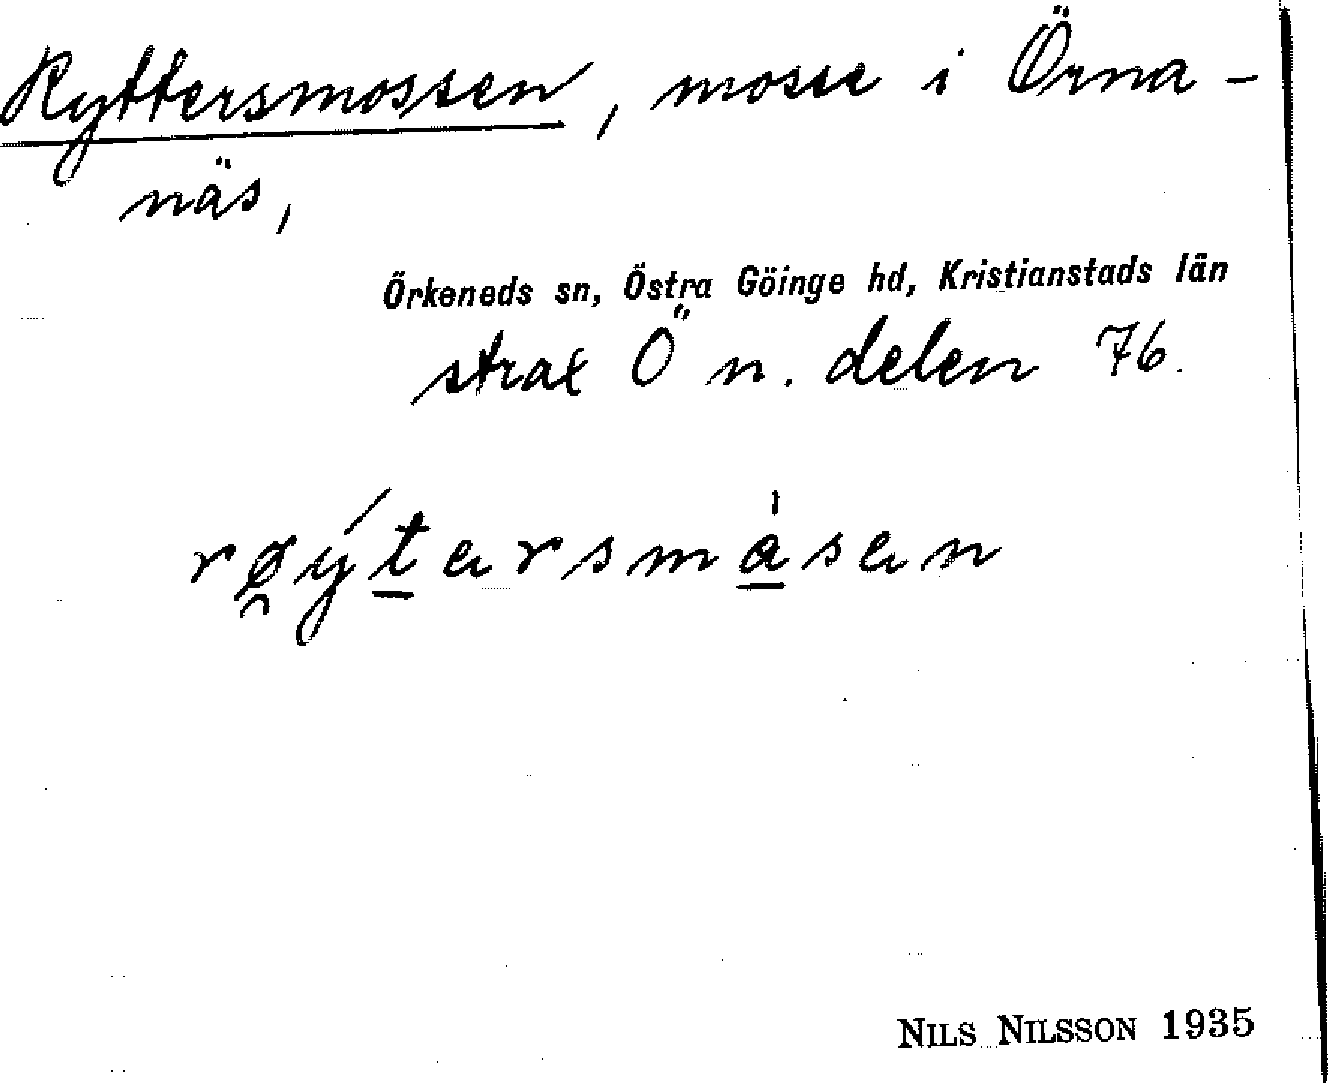 Ryttersmossen, mosse i Örna-
näs,
Örkeneds sn, Östra Göinge hd, Kristianstads län
strax Ö n. delen 76.
røýtersmåsen
NILS NILSSON 1935